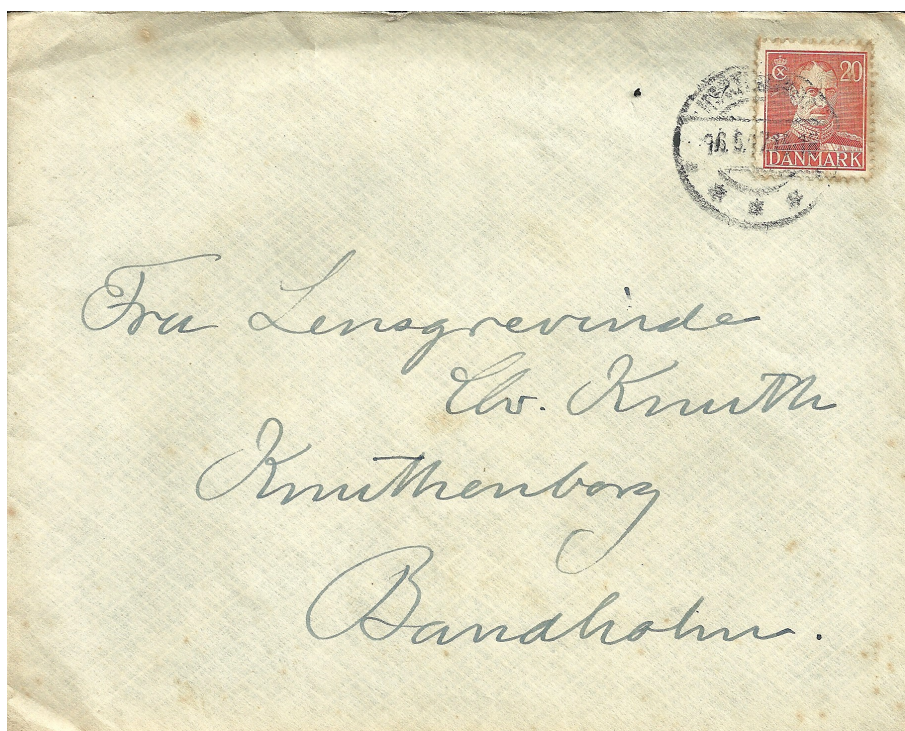 20
DANMARK
Fru Lensgrevinde
Elv. Knuth
Knuthenborg
Bandholm.